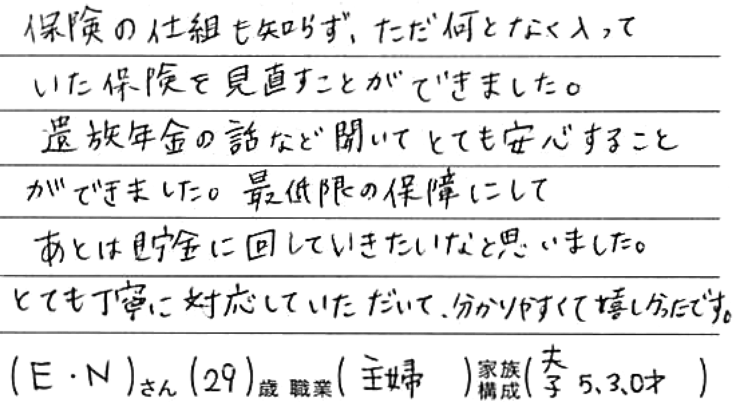 保険の仕組も知らず、ただ何となく入って
いた保険を見直すことができました。
遺族年金の話など聞いてとても安心すること
ができました。最低限の保障にして
あとは貯金に回していきたいなと思いました。
とても丁寧に対応していただいて、分かりやすくて嬉しかったです。
(E・N)さん(29)歳 職業(主婦 )家族構成(夫 子 5、3、0才 )